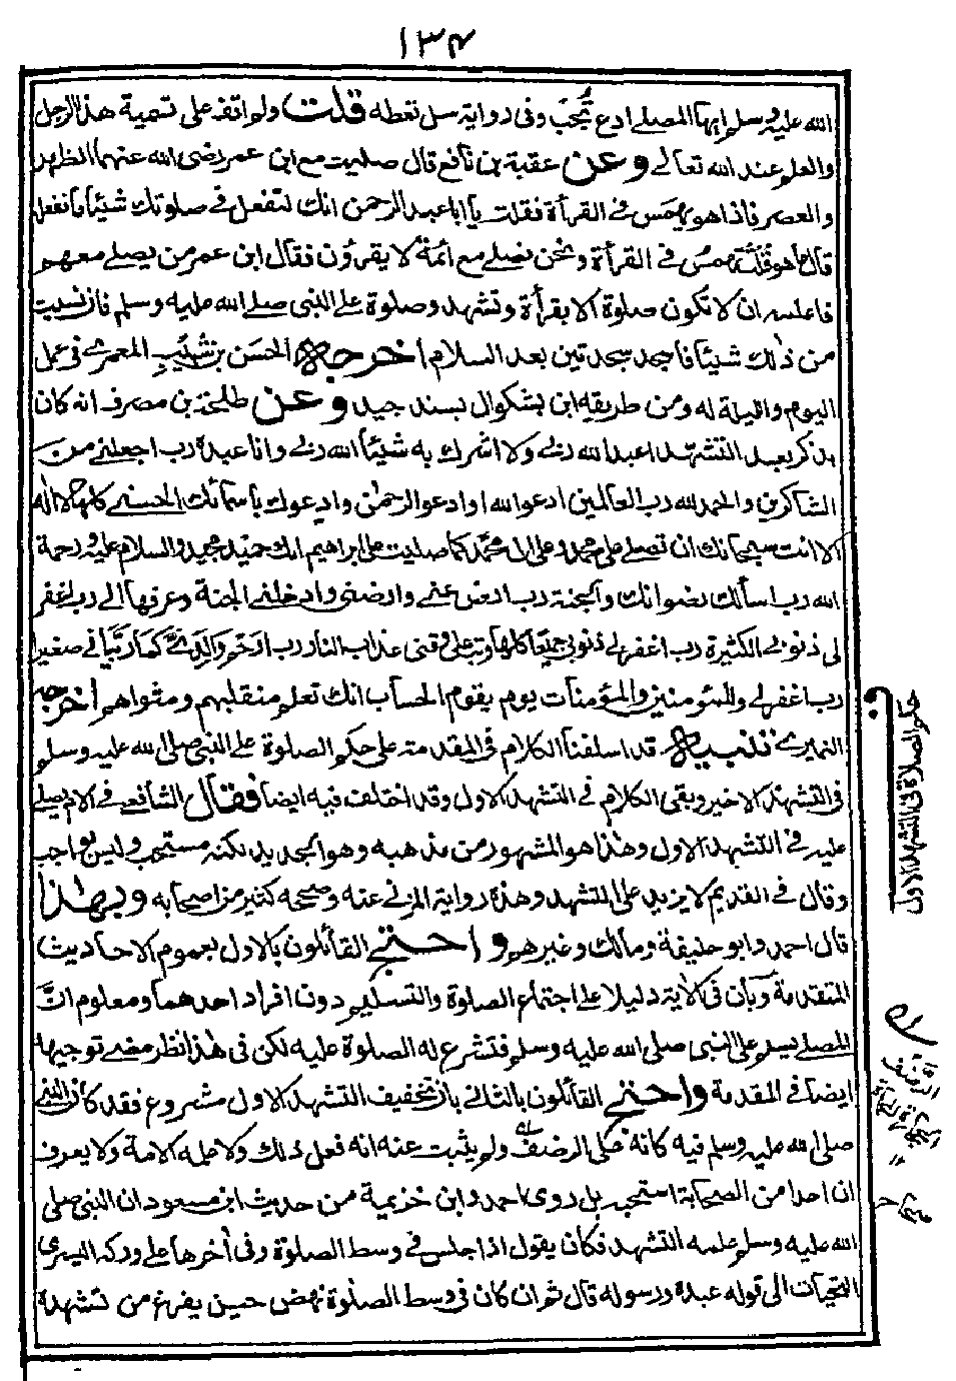 ١٣۴
الله عليه وسلم ايها المصلي ادع تجب وفي رواية سل تعطه قلت ولم اتف على تسمية هذا الرجل
والعلم عند الله تعالى وعن عقبة بن نافع قال صليت مع ابن عمر رضى الله عنهما الظهر
والعصر فاذا هو يهمس فى القرأة فقلت يا ابا عبد الرحمن انك لتفعل في صلوتك شيئا ما نفعله
قال ما هو قلت تهمس فى القرأة ونحن نصلي مع ائمة لا يقرؤن فقال ابن عمر من يصلي معهم
فاعلمه ان لا تكون صلوة الا بقرأة وتشهد وصلوة على النبى صلى الله عليه وسلم فان نسيت
من ذلك شيئا فاسجد سجدتين بعد السلام اخرجه الحسن بن شبيب المعمري في عمل
اليوم والليلة له ومن طريقه ابن بشكوال بسند جيد وعن طلحة بن مصرف انه كان
يذكر بعد التشهد اعبد الله ربي ولا اشرك به شيئا الله ربي وانا عبده رب اجعلني من
الشاكرين والحمد لله رب العالمين ادعو الله او ادعو الرحمن وادعوك باسمائك الحسنى كلها لا اله
الا انت سبحانك ان تصلي على محمد وعلى ال محمد كما صليت على ابراهيم انك حميد مجيد والسلام عليه ورحمة
الله رب اسألك رضوانك والجنة رب ارض عني وارضني وادخلني الجنة وعرفها الي رب اغفر
لى ذنوبي الكثيرة رب اغفر لي ذنوبي جميعا كلها وتب علي وقنى عذاب النار رب ارحم والدي كما ربيا في صغيرا
رب اغفر لي وللمؤمنين والمؤمنات يوم يقوم الحساب انك تعلم منقلبهم ومثواهم اخرجه
النميري تنبيه قد اسلفنا الكلام فى المقدمة على حكم الصلوة على النبى صلى الله عليه وسلم
فى التشهد الاخير وبقى الكلام في التشهد الاول وقد اختلف فيه ايضا فقال الشافعي في الام يصلي
عليه في التشهد الاول وهذا هو المشهور من مذهبه وهو الجديد لكنه مستحب وليس بواجب
وقال في القديم لا يزيد على التشهد وهذه رواية المزني عنه وصححه كثير من اصحابه وبهذا
قال احمد وابو حنيفة ومالك وغيرهم واحتج القائلون بالاول بعموم الاحاديث
المتقدمة وبان فى الآية دليلا على اجتماع الصلوة والتسليم دون افراد احدهما ومعلوم ان
المصلي يسلم على النبى صلى الله عليه وسلم فتشرع له الصلوة عليه لكن فى هذا نظر مضى توجيهه
ايضا في المقدمة واحتج القائلون بالثاني بان تخفيف التشهد الاول مشروع فقد كان النبي
صلى الله عليه وسلم فيه كانه على الرضف ولم يثبت عنه انه فعل ذلك ولا علمه الامة ولا يعرف
ان احدا من الصحابة استحبه بل روى احمد وابن خزيمة من حديث ابن مسعود ان النبى صلى
الله عليه وسلم علمه التشهد فكان يقول اذا جلس في وسط الصلوة وفى آخرها على وركه اليسرى
التحيات الى قوله عبده ورسوله قال ثم ان كان فى وسط الصلوة نهض حين يفرغ من تشهده
حكم الصلاة فى التشهد الاول
الرضف